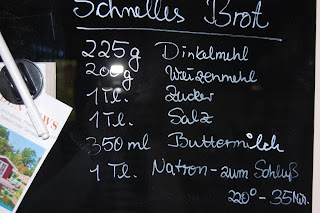 Schnelles Brot
225g Dinkelmehl
200g Weizenmehl
1 Tl. Zucker
1 Tl. Salz
350 ml Buttermilch
1 Tl. Natron - zum Schluß
220° - 35 Min.